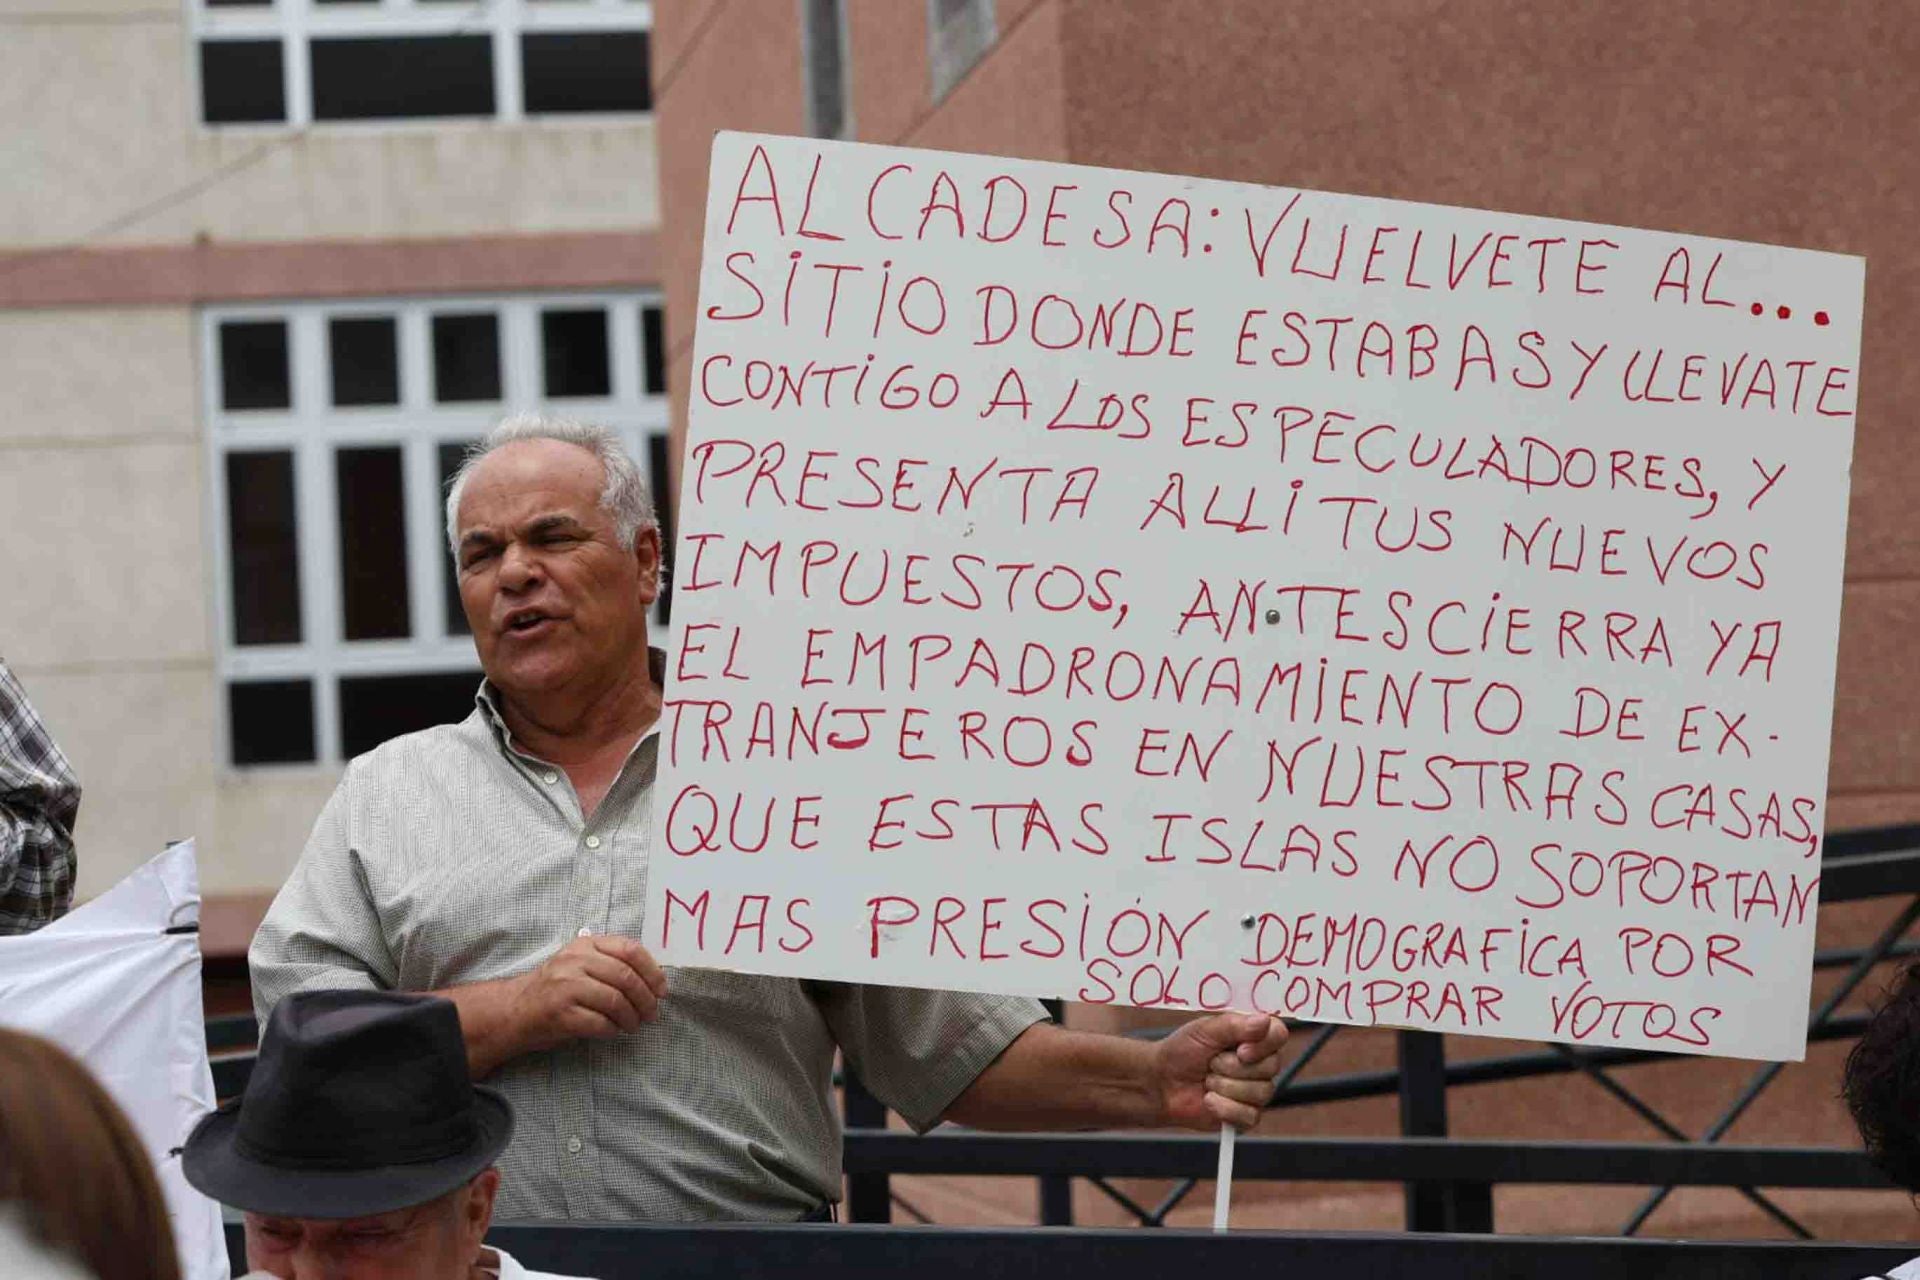 ALCADESA: VUELVETE AL...
SITIO DONDE ESTABAS Y LLEVATE
CONTIGO A LOS ESPECULADORES, Y
PRESENTA ALLI TUS NUEVOS
IMPUESTOS, ANTES CIERRA YA
EL EMPADRONAMIENTO DE EX-
TRANJEROS EN NUESTRAS CASAS,
QUE ESTAS ISLAS NO SOPORTAN
MAS PRESIÓN DEMOGRAFICA POR
SOLO COMPRAR VOTOS